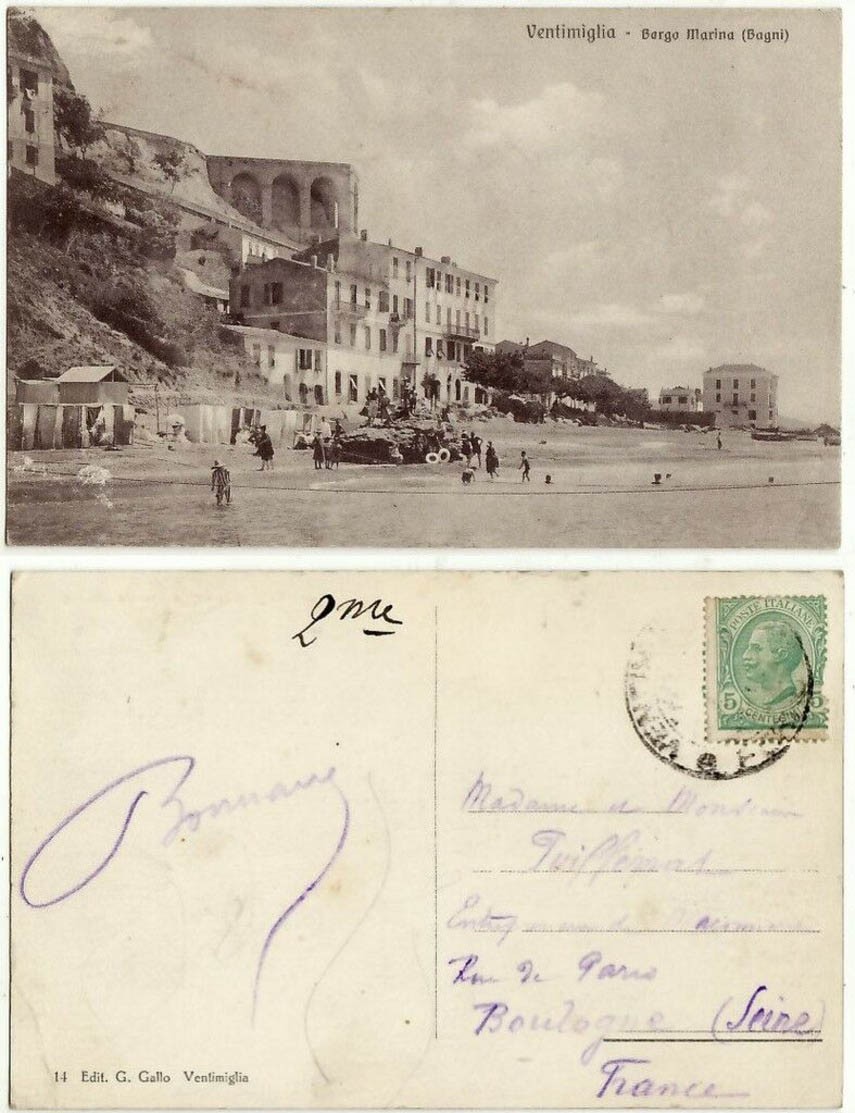 Ventimiglia - Borgo Marina (Bagni)
2me
POSTE ITALIANE
5 5
CENTESIMI
VENTI
Madame et Monsieur
Rue de Paris
Boulogne (Seine)
France
14 Edit. G. Gallo Ventimiglia